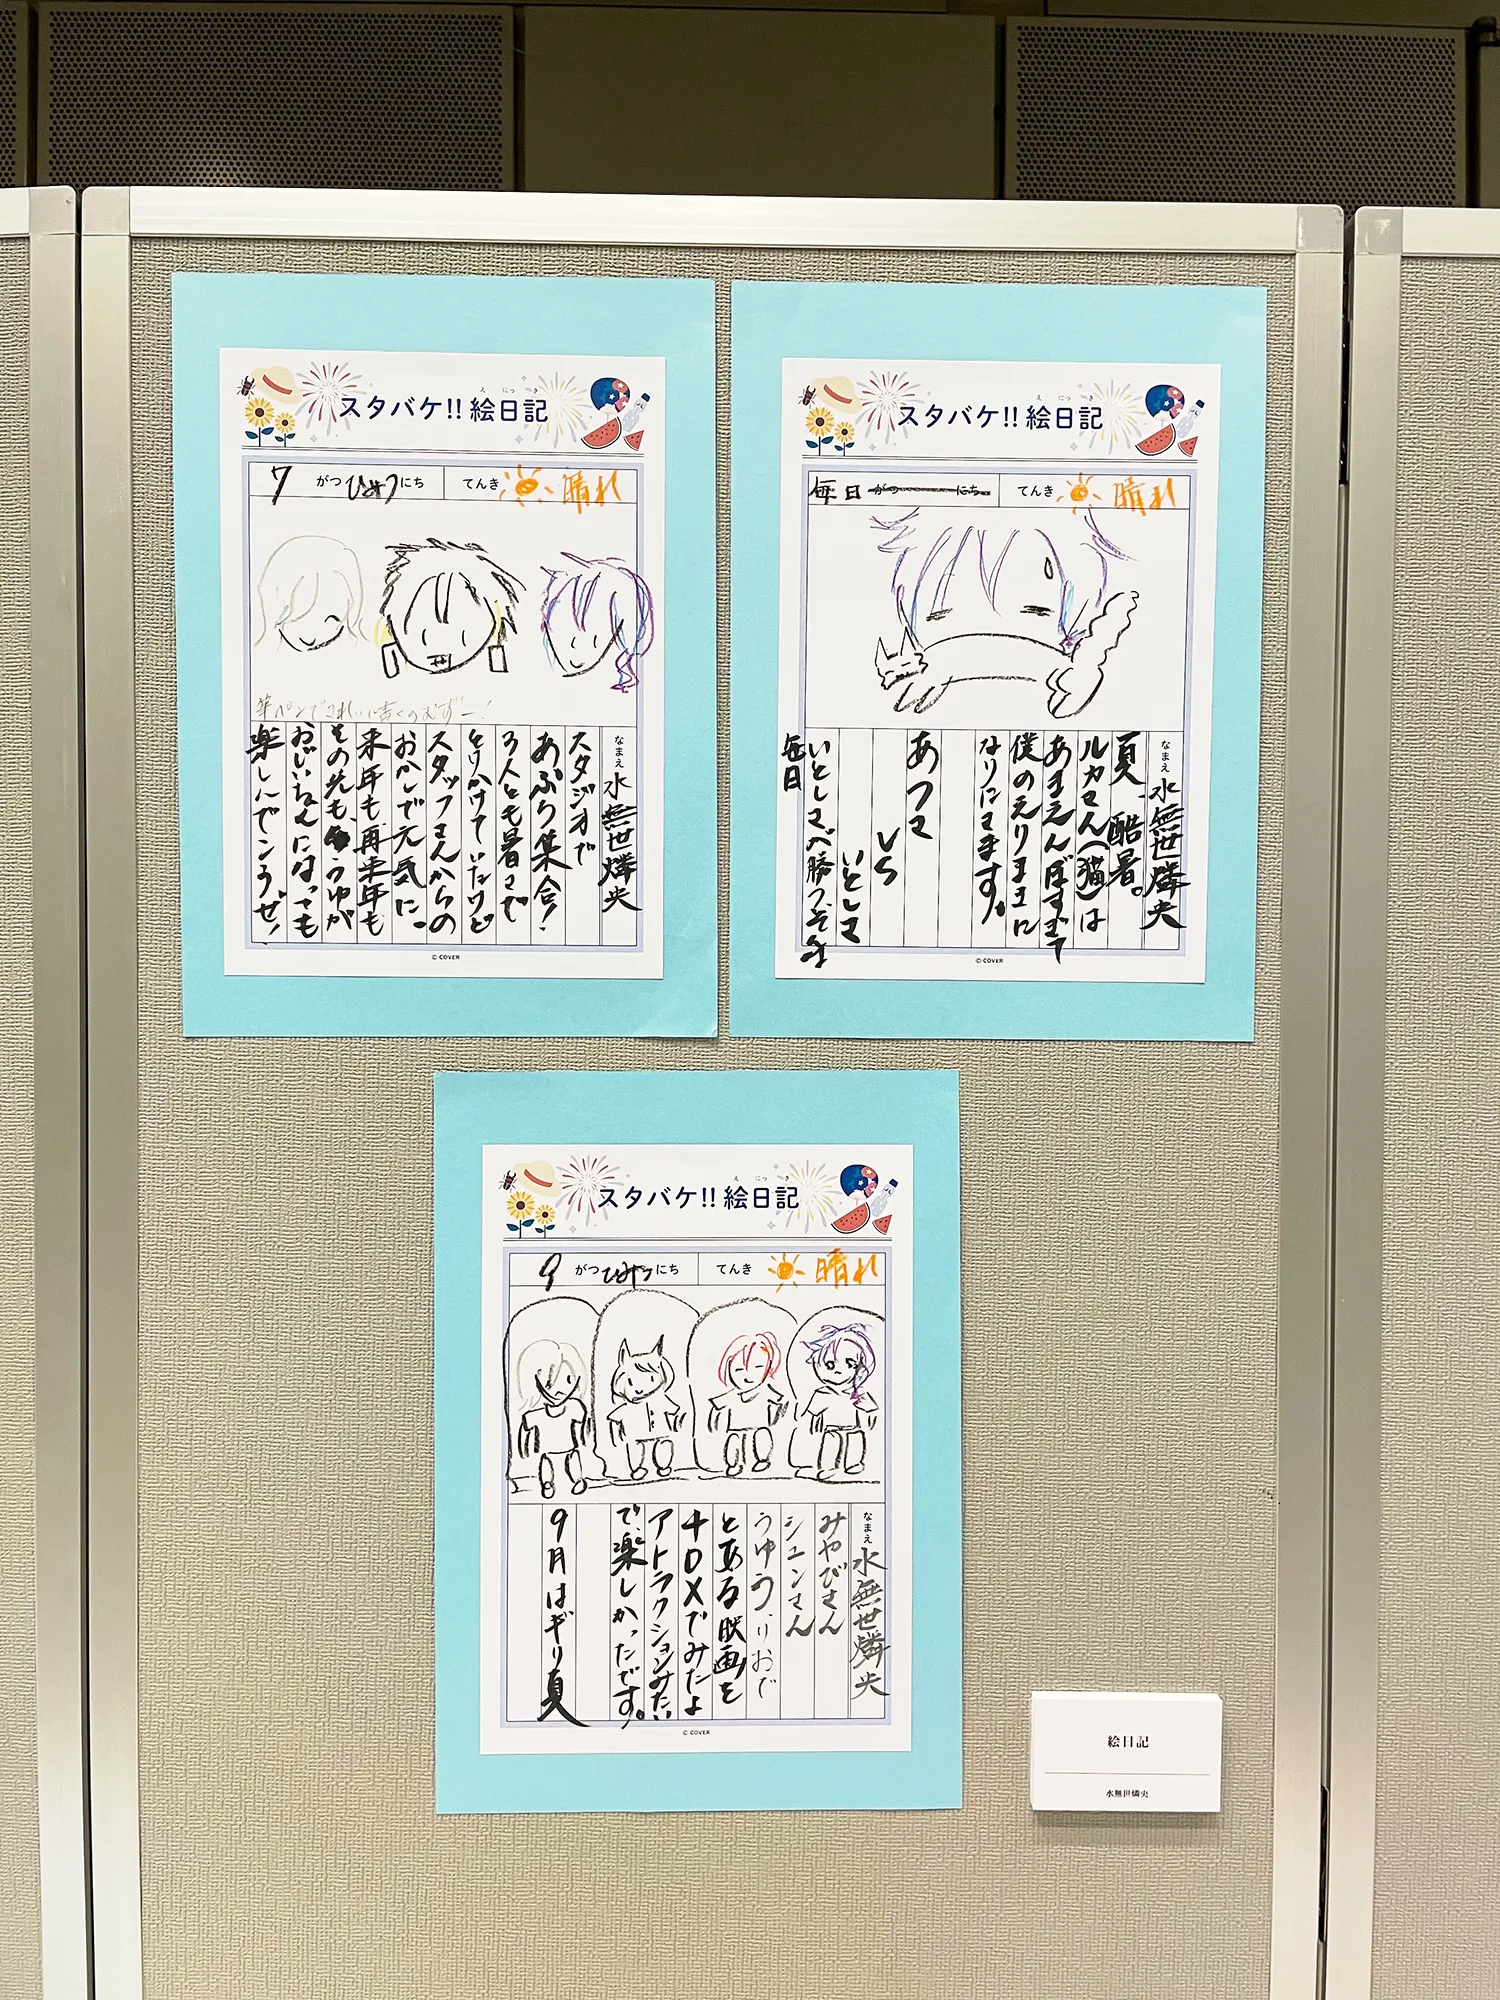 スタバケ!! 絵日記
え にっ き
7 がつ ひみつ にち てんき 晴れ
筆ペンできれいに書くのむずー!
なまえ 水無世燐央
スタジオで
あぷり集合!
3人とも暑さで
とりかけていたけど
スタッフさんからの
おかしで元気に。
来年も再来年も
その先も、うゆが
おじいちゃんになっても
楽しんでこうぜ!
© COVER
スタバケ!! 絵日記
え にっ き
毎日 がつ にち てんき 晴れ
なまえ 水無世燐央
夏、酷暑。
ルカさん(猫)は
あまえんぼすぎて
僕のえりまきに
なりにきます。
あつさ
VS
いとしさ
いとしさが勝つぞ
毎日
© COVER
スタバケ!! 絵日記
え にっ き
9 がつ ひみつ にち てんき 晴れ
なまえ 水無世燐央
みやびさん
シュンさん
うゆう、りおで
とある映画を
4DXでみたよ
アトラクションみたい
で、楽しかったです。
9月はギリ夏
© COVER
絵日記
水無世燐央